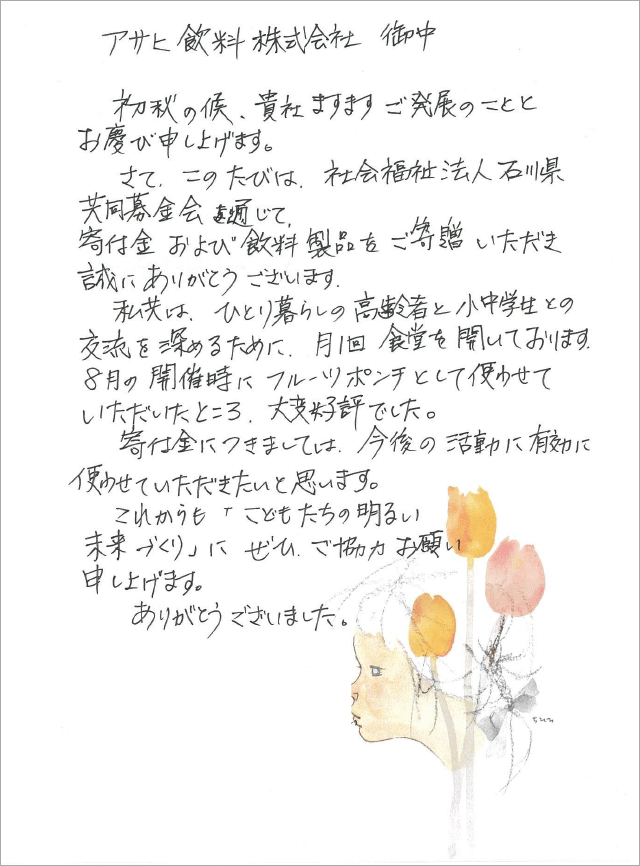 アサヒ飲料株式会社 御中
初秋の候、貴社ますますご発展のことと
お慶び申し上げます。
さて、このたびは、社会福祉法人石川県
共同募金会を通じて、
寄付金および飲料製品をご寄贈いただき
誠にありがとうございます。
私共は、ひとり暮らしの高齢者と小中学生との
交流を深めるために、月1回食堂を開いております。
8月の開催時にフルーツポンチとして使わせて
いただいたところ、大変好評でした。
寄付金につきましては、今後の活動に有効に
使わせていただきたいと思います。
これからも「こどもたちの明るい
未来づくり」にぜひ、ご協力お願い
申し上げます。
ありがとうございました。
ちひろ